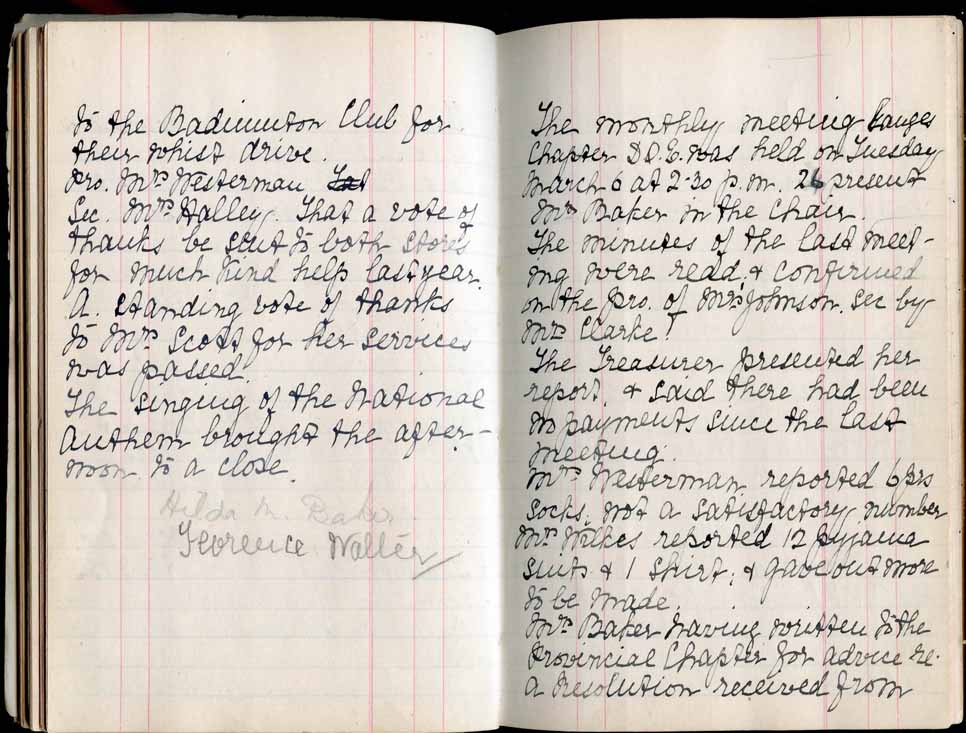 to the Badminton Club for
their whist drive.
Pro. Mrs Westerman
Sec. Mrs Halley. That a vote of
thanks be sent to both stores
for much kind help last year.
A. standing vote of thanks
to Mrs Scott for her services
was passed.
The singing of the National
Anthem brought the after-
noon to a close.
Hilda M. Baker
Florence Waller
The monthly meeting Ganges
Chapter I.O.D.E. was held on Tuesday
March 6 at 2-30 p.m. 26 present
Mrs Baker in the Chair.
The minutes of the last meet-
ing were read, & confirmed
on the pro. of Mrs Johnson. Sec by
Mrs Clarke.
The Treasurer presented her
report. & said there had been
no payments since the last
meeting.
Mrs Westerman reported 6 prs
socks, not a satisfactory number
Mrs Wilkes reported 12 pyjama
suits & 1 shirt; & gave out more
to be made.
Mrs Baker having written to the
Provincial Chapter for advice re.
a resolution received from